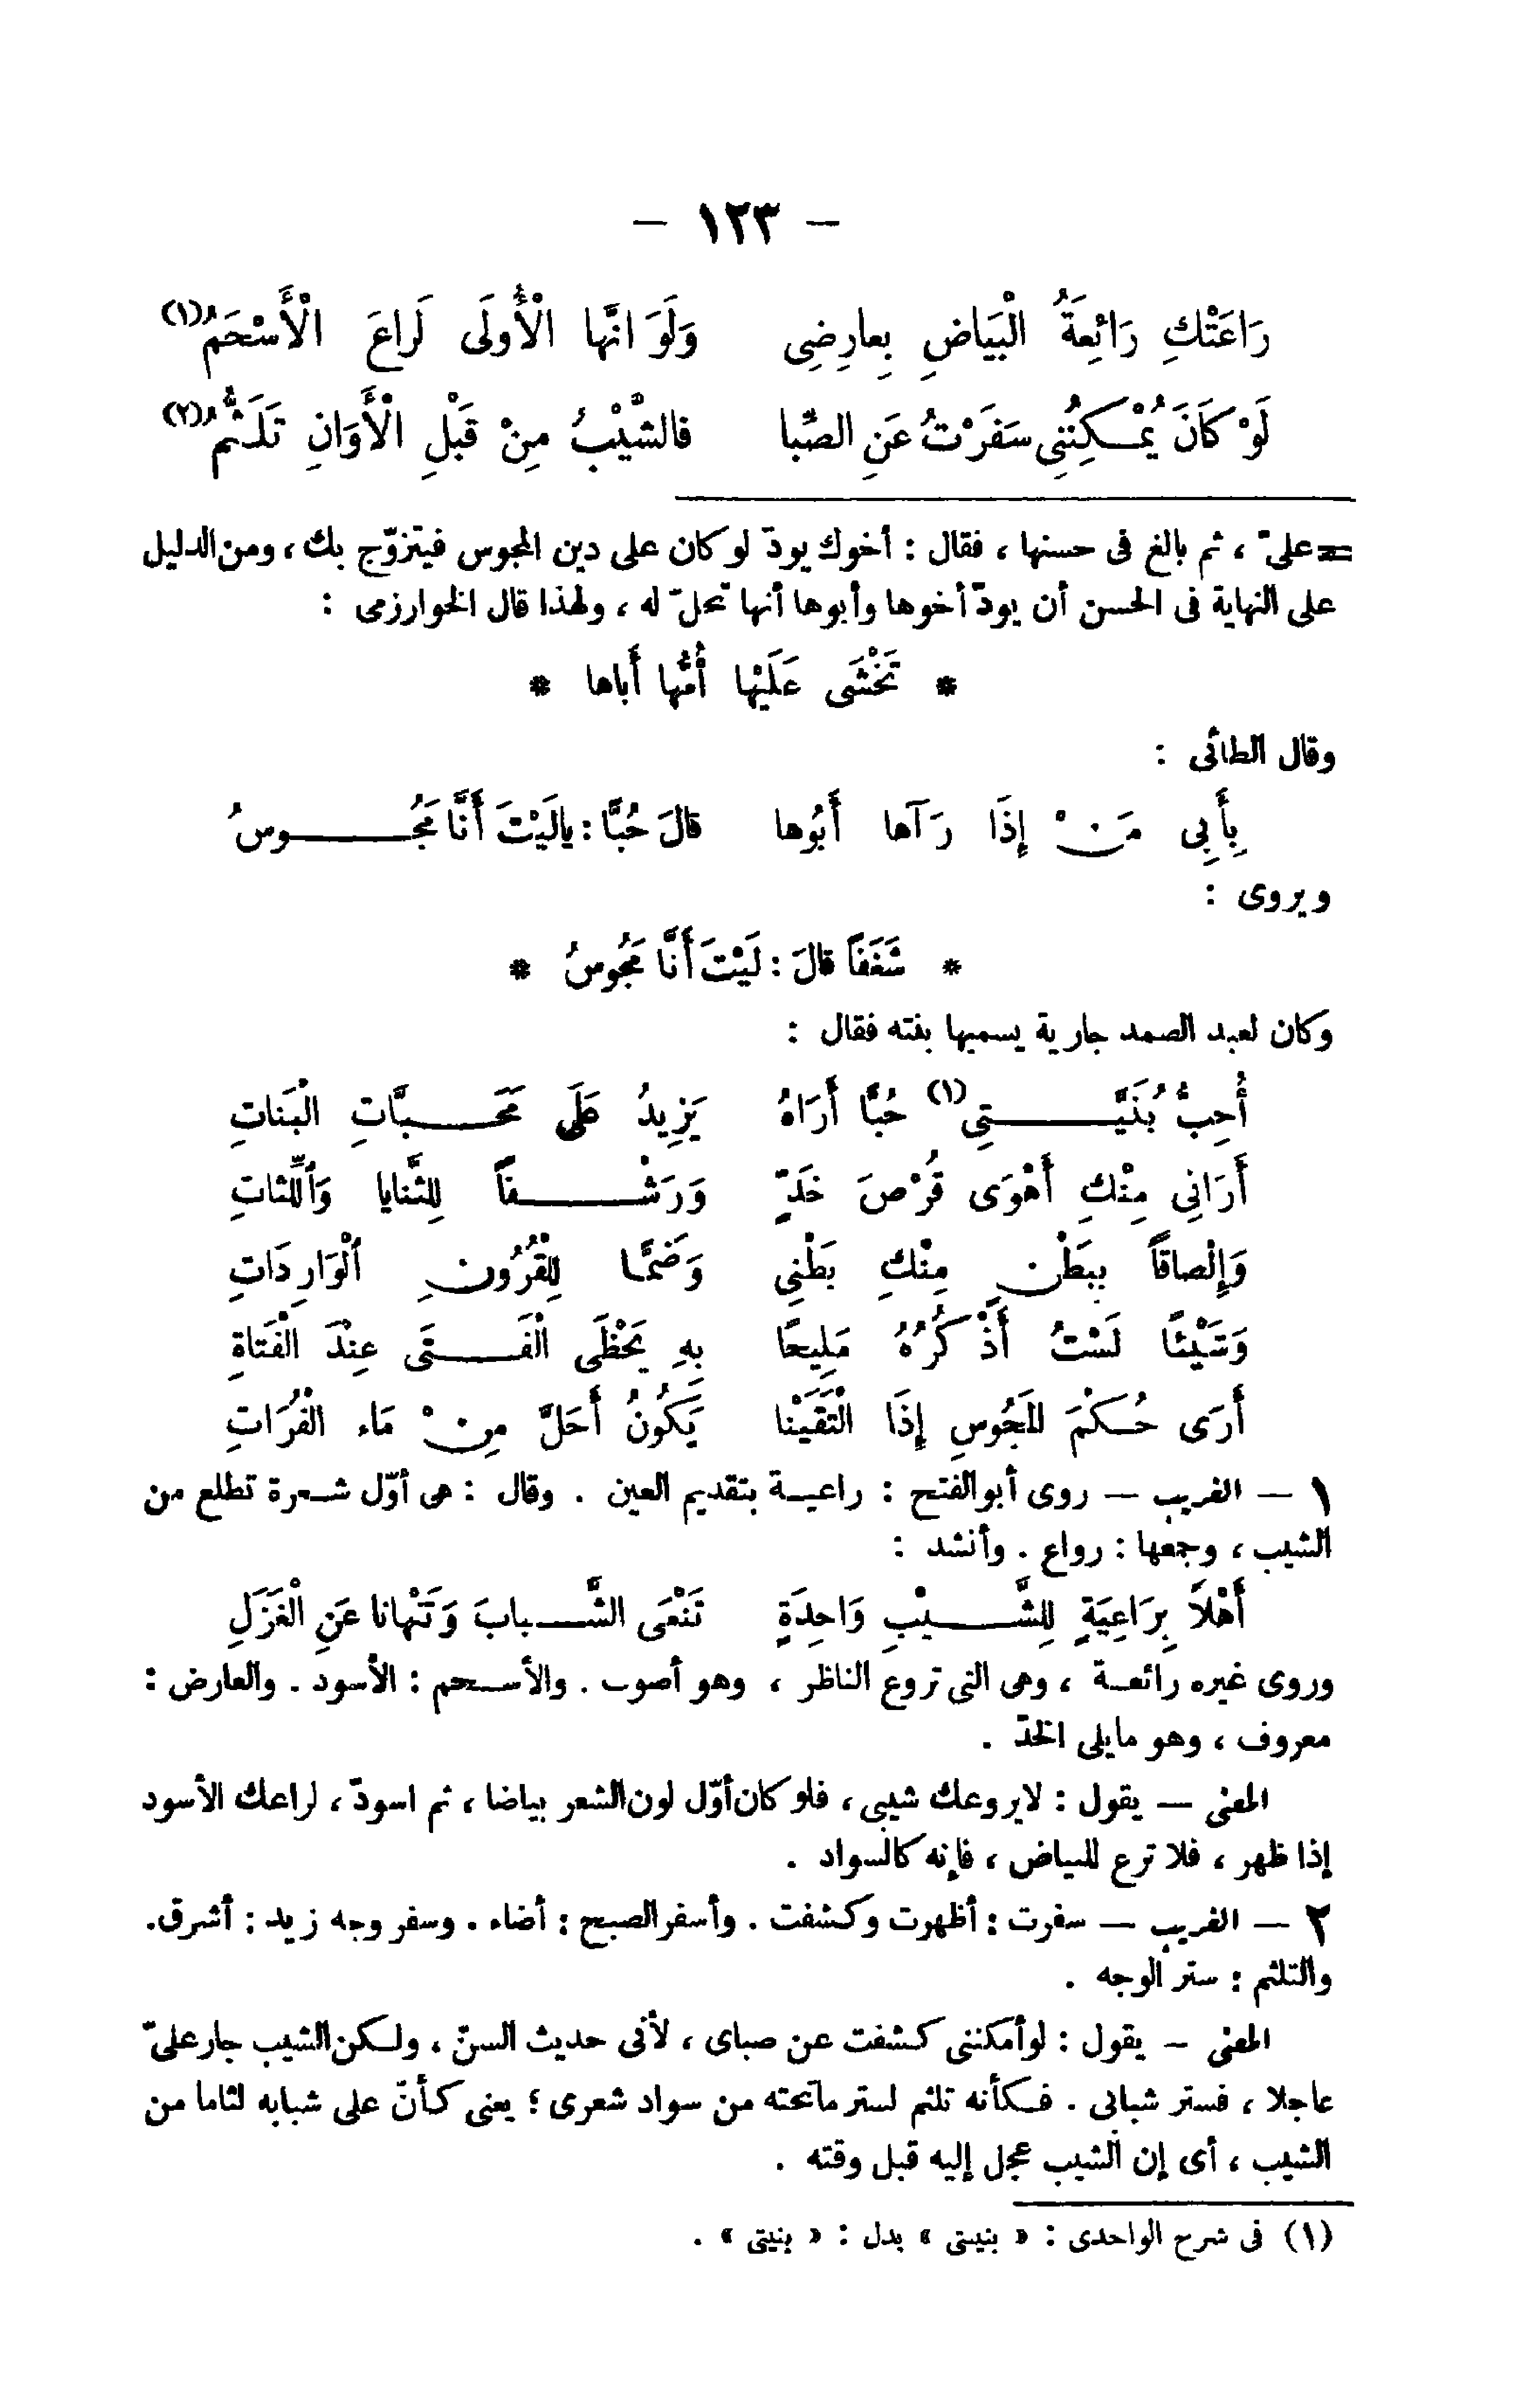 — ١٢٣ —
رَاعَتْكِ رَائِعَةُ الْبَيَاضِ بِعارِضِى وَلَوَ انَّها الْأُولَى لَراعَ الْأَسْحَمُ(١)
لَوْ كَانَ يُمْكِنُنِى سَفَرْتُ عَنِ الصِّبا فالشَّيْبُ مِنْ قَبْلِ الْأَوَانِ تَلَثُّمُ(٢)
=علىّ ، ثم بالغ فى حسنها ، فقال : أخوك يودّ لو كان على دين المجوس فيتزوّج بك ، ومن الدليل
على النهاية فى الحسن أن يودّ أخوها وأبوها أنها تحلّ له ، ولهذا قال الخوارزمى :
* تَخْشَى عَلَيْها أُمُّها أَباها *
وقال الطائى :
بِأَبِى مَنْ إِذَا رَآها أَبُوها قالَ حُبًّا : يالَيْتَ أَنَّا مَجُوسُ
ويروى :
* شَغَفاً قالَ : لَيْتَ أَنَّا مَجُوسُ *
وكان لعبد الصمد جارية يسميها بنته فقال :
أُحِبُّ بُنَيَّتِى(١) حُبًّا أَرَاهُ يَزِيدُ عَلَى مَحَبَّاتِ الْبَناتِ
أَرَانِى مِنْكِ أَهْوَى قُرْصَ خَدٍّ وَرَشْفاً لِلثَّنايا وَاللِّثاتِ
وَإِلْصاقاً بِبَطْنٍ مِنْكِ بَطْنِى وَضَمًّا لِلْقُرُونِ الْوَارِدَاتِ
وَشَيْئًا لَسْتُ أَذْكُرُهُ مَلِيحًا بِهِ يَحْظَى الْفَتَى عِنْدَ الْفَتاةِ
أَرَى حُكْمَ المَجُوسِ إِذَا الْتَقَيْنا يَكُونُ أَحَلَّ مِنْ مَاء الْفُرَاتِ
١ — الغريب — روى أبو الفتح : راعية بتقديم العين . وقال : هى أوّل شعرة تطلع من
الشيب ، وجمعها : رواع . وأنشد :
أَهْلاً بِرَاعِيَةٍ لِلشَّيْبِ وَاحِدَةٍ تَنْعَى الشَّبابَ وَتَنْهانا عَنِ الْغَزَلِ
وروى غيره رائعة ، وهى التى تروع الناظر ، وهو أصوب . والأسحم : الأسود . والعارض :
معروف ، وهو مايلى الخدّ .
المعنى — يقول : لايروعك شيبى ، فلو كان أوّل لون الشعر بياضا ، ثم اسودّ ، لراعك الأسود
إذا ظهر ، فلا ترع للبياض ، فإنه كالسواد .
٢ — الغريب — سفرت : أظهرت وكشفت . وأسفر الصبح : أضاء . وسفر وجه زيد : أشرق.
والتلثم : ستر الوجه .
المعنى — يقول : لو أمكننى كشفت عن صباى ، لأنى حديث السنّ ، ولكن الشيب جار علىّ
عاجلا ، فستر شبابى . فكأنه تلثم لستر ماتحته من سواد شعرى ؛ يعنى كأنّ على شبابه لثاما من
الشيب ، أى إن الشيب عجل إليه قبل وقته .
(١) فى شرح الواحدى : « بنيستى » بدل : « بنيتى » .